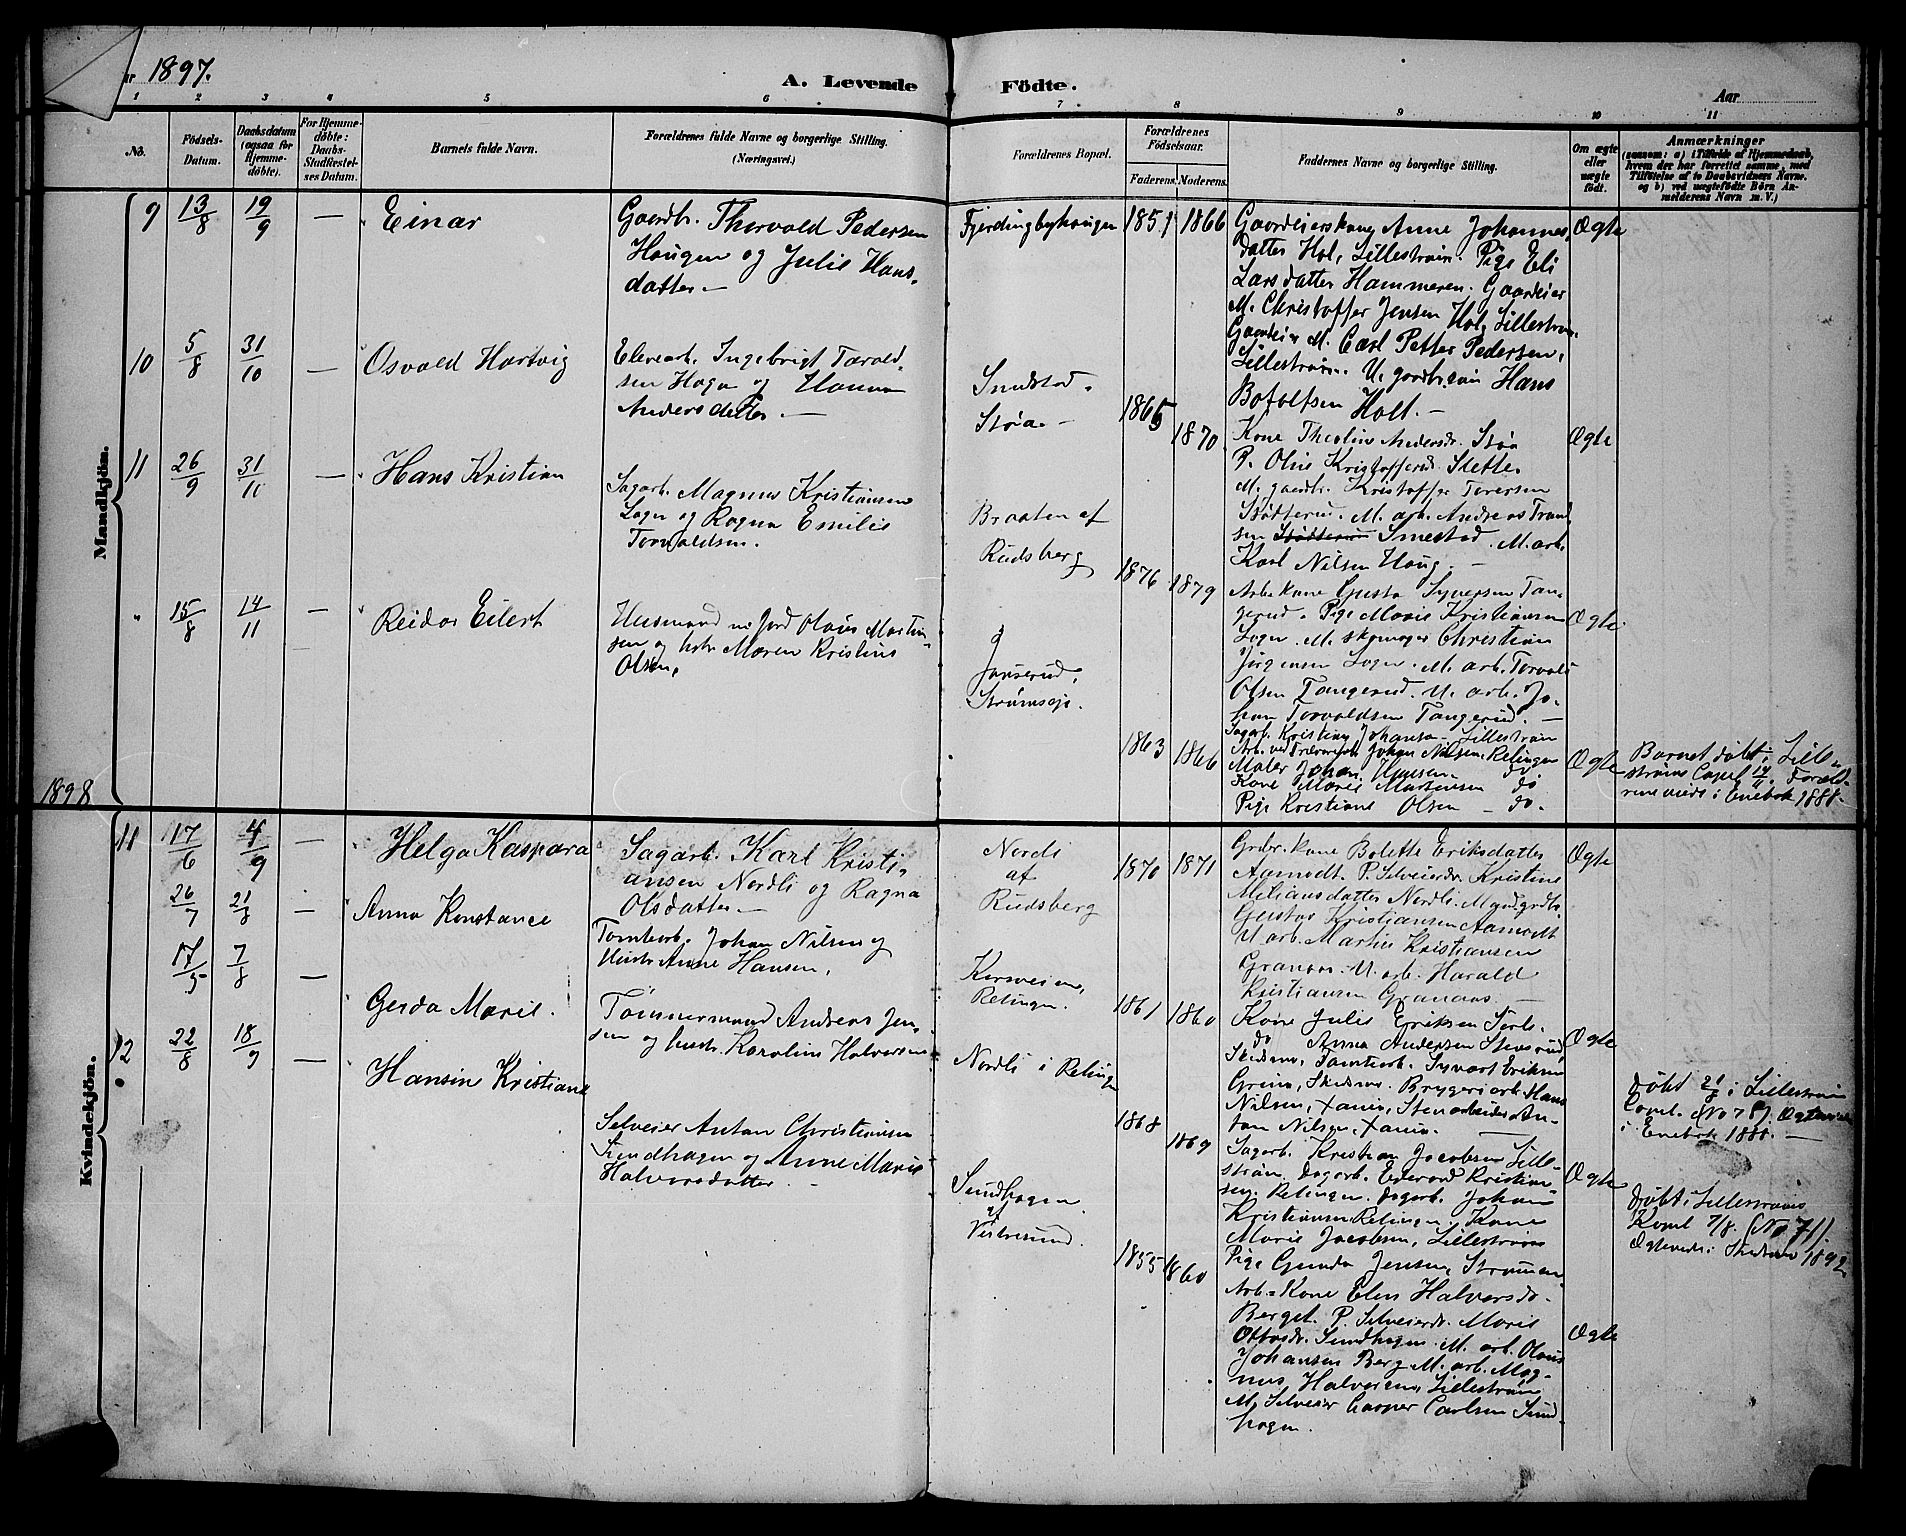 Aar 1897.
A. Levende Födte.
Aar
1 2 3 4 5 6 7 8 9 10 11
No.
Födsels-Datum.
Daabsdatum (ogsaa for Hjemme-døbte).
For Hjemme-døbte: Daabs-Stadfæstel-ses Datum.
Barnets fulde Navn.
Forældrenes fulde Navne og borgerlige Stilling. (Næringsvei.)
Forældrenes Bopæl.
Forældrenes Födselsaar.
Faderens.
Moderens.
Faddernes Navne og borgerlige Stilling.
Om ægte eller uægte födt.
Anmærkninger
(saasom: a) i Tilfælde af Hjemmedaab, hvem der har forrettet samme, med Tilföielse af to Daabsvidners Navne. og b) ved uægtefödte Börn Anmelderens Navn m. V.)
Mandkjön.
9 13/8 19/9 — Einar
Gaardb. Thorvald Pedersen
Haugen og Julie Hans-
datter —
Fjerdingbyhaugen 1851 1866
Gaardeierskone Anne Johannes-
datter Hol, Lillestrøm. Pige Eli
Larsdatter Hammeren. Gaardeier
M. Christoffer Jensen Hol, Lillestrøm.
Gaardeier M. Carl Petter Pedersen,
Lillestrøm. U. gaardb.søn Hans
Botolfsen Holt. —
Ægte
10 5/8 31/10 — Osvald Hartvig
Elevearb. Ingebrigt Tarald-
sen Haga og Hanna
Andersdatter —
Støa — 1865 1870
Kone Theoline Andersdr. Støa
P. Oline Kristofferud. Slette.
M. gaardbr. Kristoffer Toversen
Stødterud. M. arb. Andreas Trond-
sen Stødterud Smestad. M. arb.
Karl Nilsen Haug. —
Ægte
11 26/9 31/10 — Hans Kristian
Sagarb. Magnus Kristiansen
Loger og Ragna Emilie
Torvaldsen.
Braaten af
Rudsberg 1876 1879
Arb.kone Gusta Syversen Tan-
gerud. Pige Marie Kristiansen
Loger. M. skomager Christian
Jörgensen Loger. M. arb. Torvald
Olsen Tangerud. U. arb. Jo-
han Torvaldsen Tangerud. —
Ægte
" 15/8 14/11 — Reidar Eilert
Husmand m. jord Olaus Martin-
sen og hstr. Maren Kristine
Olsen,
1863 1866
Sagarb. Kristian Johansen Lillestrøm
Johan Nilsen Relingen
Maler Johan Hansen do
Kone Marie Martinsen do
Pige Kristiane Olsen — do.
Ægte
Barnet døbt i Lille-
strøms Capel 14/11. Foræld-
rene viede i Enebak 1888.
1898
Kvindekjön.
11 17/6 4/9 — Helga Kaspara
Sagarb. Karl Kristi-
ansen Nordli og Ragna
Olsdatter —
Nordli
af
Rudsberg
1870 1871
Grdbr.kone Bolette Eriksdatter
Aamodt. P. Selveierdr. Kristine
Miliansdatter Nordli. M. grdbr.
Gustav Kristiansen Aamodt
U. arb. Martin Kristiansen
Granaas. U. arb. Harald
Kristiansen Granaas. —
Ægte
26/7 21/8 — Anna Konstance
Tomtearb. Johan Nilsen og
Hustr. Anne Hansen,
Relingen. 1861 1860
Kone Julie Eriksen
do Anna Andersen Stensrud
Skedsmo, Tomtearb. Syvart Eriksen
Skedsmo. Bryggeriarb. Hans
Nilsen, Stenarbeider An-
ton Nilsen,
Ægte
Døbt 21/8 i Lillestrøm
Capel.
i Enebak 1888. —
17/5 7/8 — Gerda Marie.
Tömmermand Andreas Jen-
sen og hustr. Karoline Halvorsen
Nordli i Relingen
1868 1869
Sagarb. Kristian Jacobsen Lille-
strøm, Sagarb. Edvard Kristian-
sen Relingen. Sagarb. Johan
Kristiansen Relingen, Kone
Marie Jacobsen, Lillestrøm
Pige Gunda Jensen, Strømmen
Ægte
Døbt i Lillestrøms
Kapel 7/8. (No 71).
Ægteviede i Skedsmo 1892
12 22/8 18/9 — Hansin Kristiane
Selveier Anton Christiansen
Sundhagen og Anne Marie
Halvorsdatter —
Sundhagen
af
Vestresund. 1855 1860
Arb.-Kone Elen Halvorsdr.
Berget. P. Selveierdr. Marie
Ottosdr. Sundhagen. M. arb. Olaus
Johansen Berg. M. arb. Mag-
nus Halvorsen, Lillestrøm
M. Selveier Casper Carlsen Sund-
hagen.
Ægte